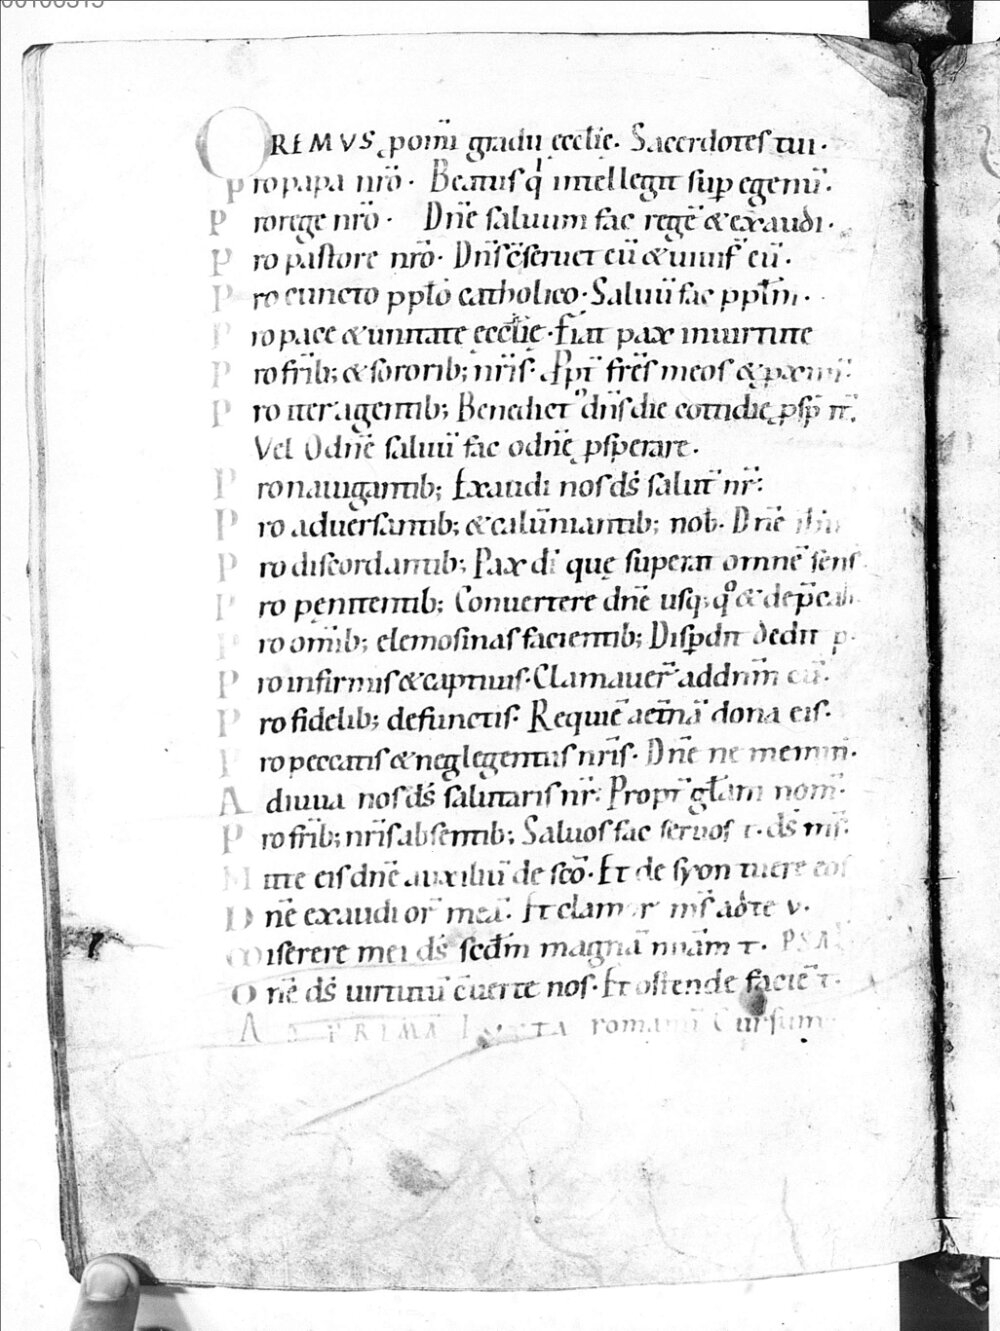 OREMVS ꝓ om̄i gradu ęccl̄ię. Sacerdotes tui.
Pro papa nr̄o. Beatus q' intellegit sup̄ egenū.
Pro rege nr̄o. Dn̄e saluum fac regē & exaudi.
Pro pastore nr̄o. Dn̄s c̄seruet eū & uiuif̄ eū.
Pro cuncto ppl̄o catholico. Saluū fac ppl̄m.
Pro pace & unitate ęccl̄ię. Fiat pax in uirtute
Pro fr̄ib; & sororib; nr̄is. Ppt̄ fr̄es meos &
Pro iter agentib; Benedict' dn̄s die cottidię ꝓsp̄
Vel O dn̄e saluū fac o dn̄ę ꝓsperare.
Pro nauigantib; Exaudi nos ds̄ salut̄ nr̄:
Pro aduersantib; & calūniantib; nob̄. Dn̄e
Pro discordantib; Pax di quę superat omnē sens
Pro pęnitentib; Conuertere dn̄e usq; q°
Pro om̄ib; elemosinas facientib; Disp̄dit dedit p.
Pro infirmis & captiuis. Clamauer̄ ad dn̄m cū.
Pro fidelib; defunctis. Requiē aet̄nā dona eis.
Pro peccatis & neglegentiis nr̄is. Dn̄e ne memin̄.
Adiuua nos ds̄ salutaris nr̄: Propt̄ gl̄am nom̄.
Pro fr̄ib; nr̄is absentib; Saluos fac seruos t. ds̄ ms̄.
Mitte eis dn̄e auxiliū de sc̄o. Et de syon tuere eos
Dn̄e exaudi or̄ meā. Et clamor ms̄ ad te v.
Miserere mei ds̄ scd̄m magnā mīam t. PSAL
Dn̄ē ds̄ uirtutū c̄uerte nos. Et ostende faciē t.
AD PRIMĀ IVXTA romanū Cursum